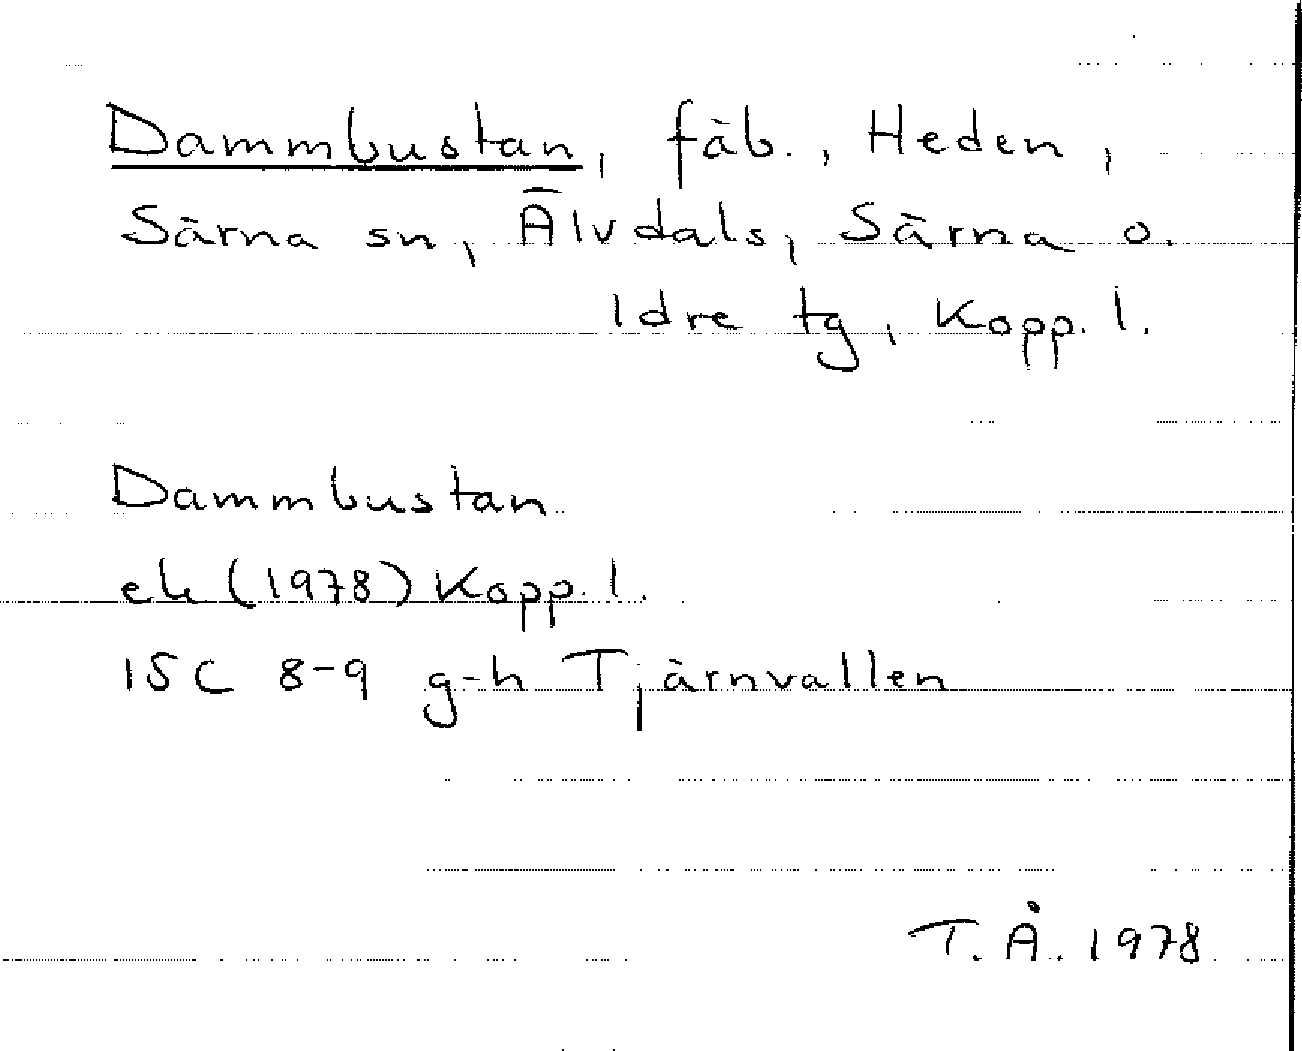 Dammbustan, fäb., Heden,
Särna sn, Älvdals, Särna o.
Idre tg, Kopp. l.
Dammbustan
ek (1978) Kopp. l.
15C 8-9 g-h Tjärnvallen
T. Å. 1978